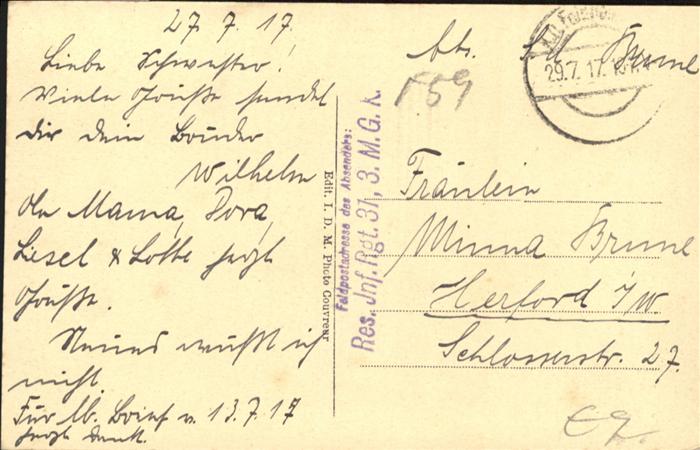 27.7.17.
Liebe Schwester!
Viele Grüße sendet
dir dein Bruder
Wilhelm
An Mama, Dora,
Liesel & Lotte herzl.
Grüße.
Neues weißt ich
nicht.
Für lb. Brief v. 13.7.17
herzl. Dank.
Edit. I. D. M. Photo Couvreur
Feldpostadresse des Absenders:
Res. Inf. Rgt. 31, 3. M. G. K.
Abs. Brune
F59
29.7.17.
Fräulein
Minna Brune
Herford i/W.
Schlosserstr. 27.